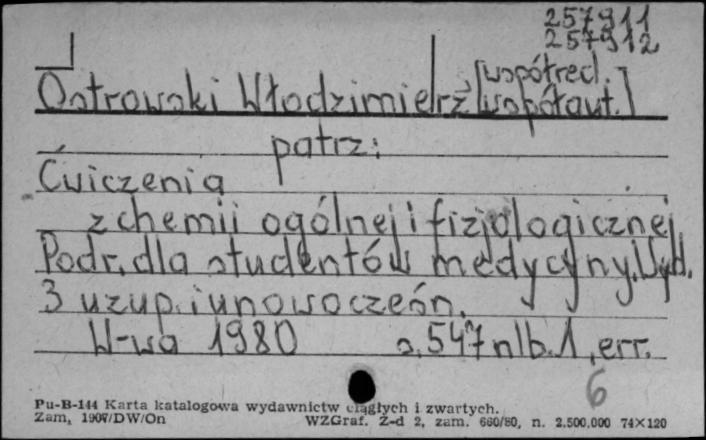 257911
257912
[współred.
Ostrowski Włodzimierz [współaut.]
patrz:
Ćwiczenia
z chemii ogólnej i fizjologicznej.
Podr. dla studentów medycyny. Wyd.
3 uzup. i unowocześn.
W-wa 1980 s. 547 nlb. 1, err.
6
Pu-B-144 Karta katalogowa wydawnictw ciągłych i zwartych.
Zam, 1907/DW/On WZGraf. Z-d 2, zam. 660/80, n. 2.500.000 74×120